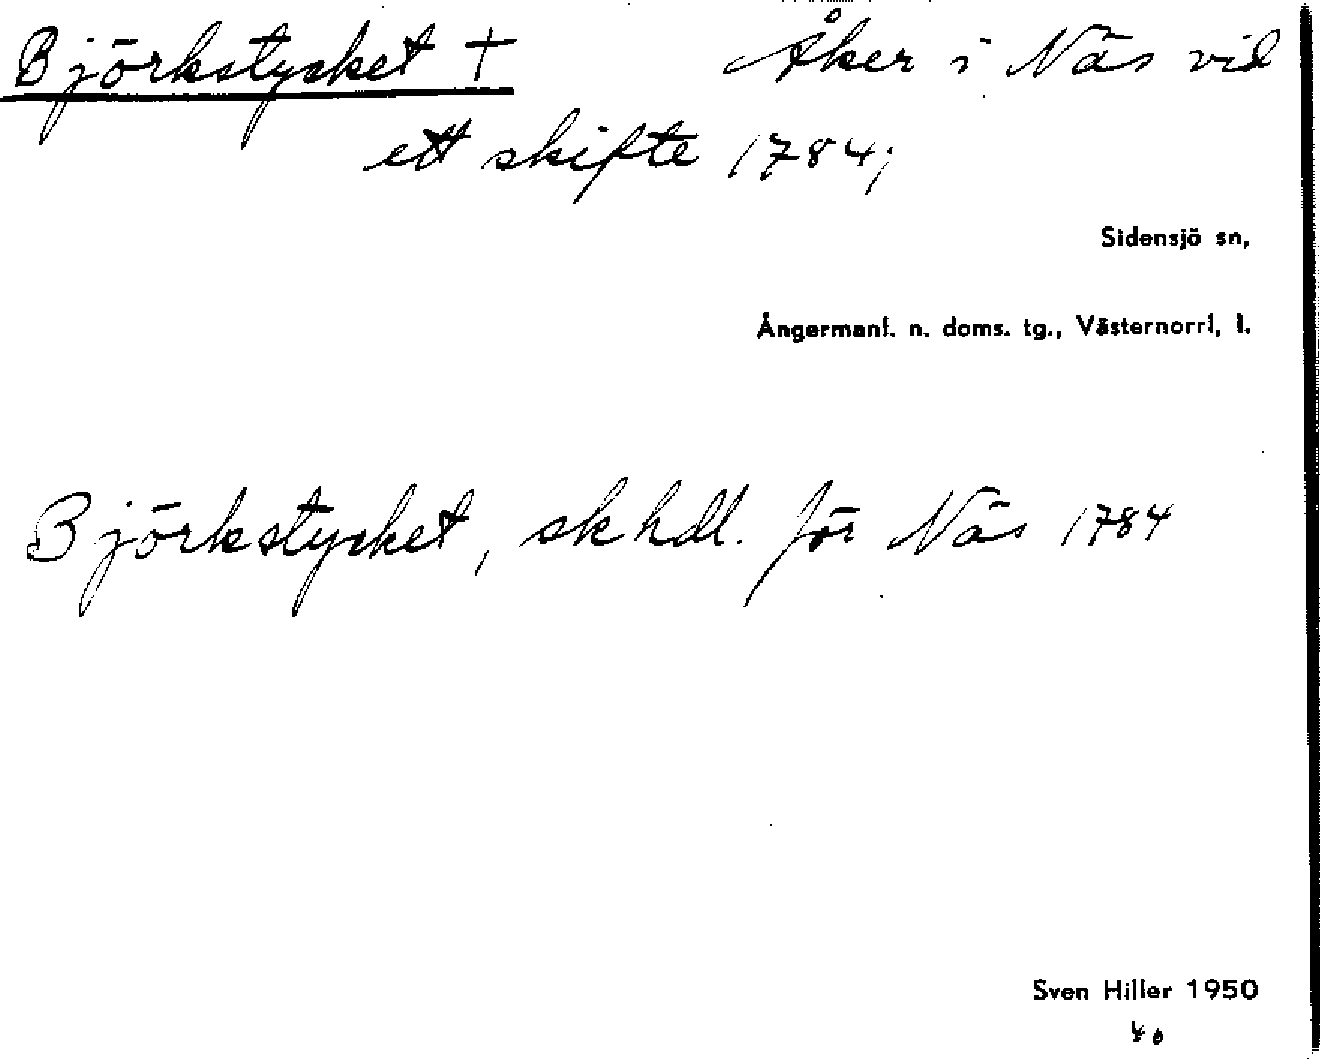 Björkstycket † Åker i Näs vid
ett skifte 1784;
Sidensjö sn,
Ångermanl. n. doms. tg., Västernorrl. l.
Björkstycket, skhdl. för Näs 1784
Sven Hiller 1950